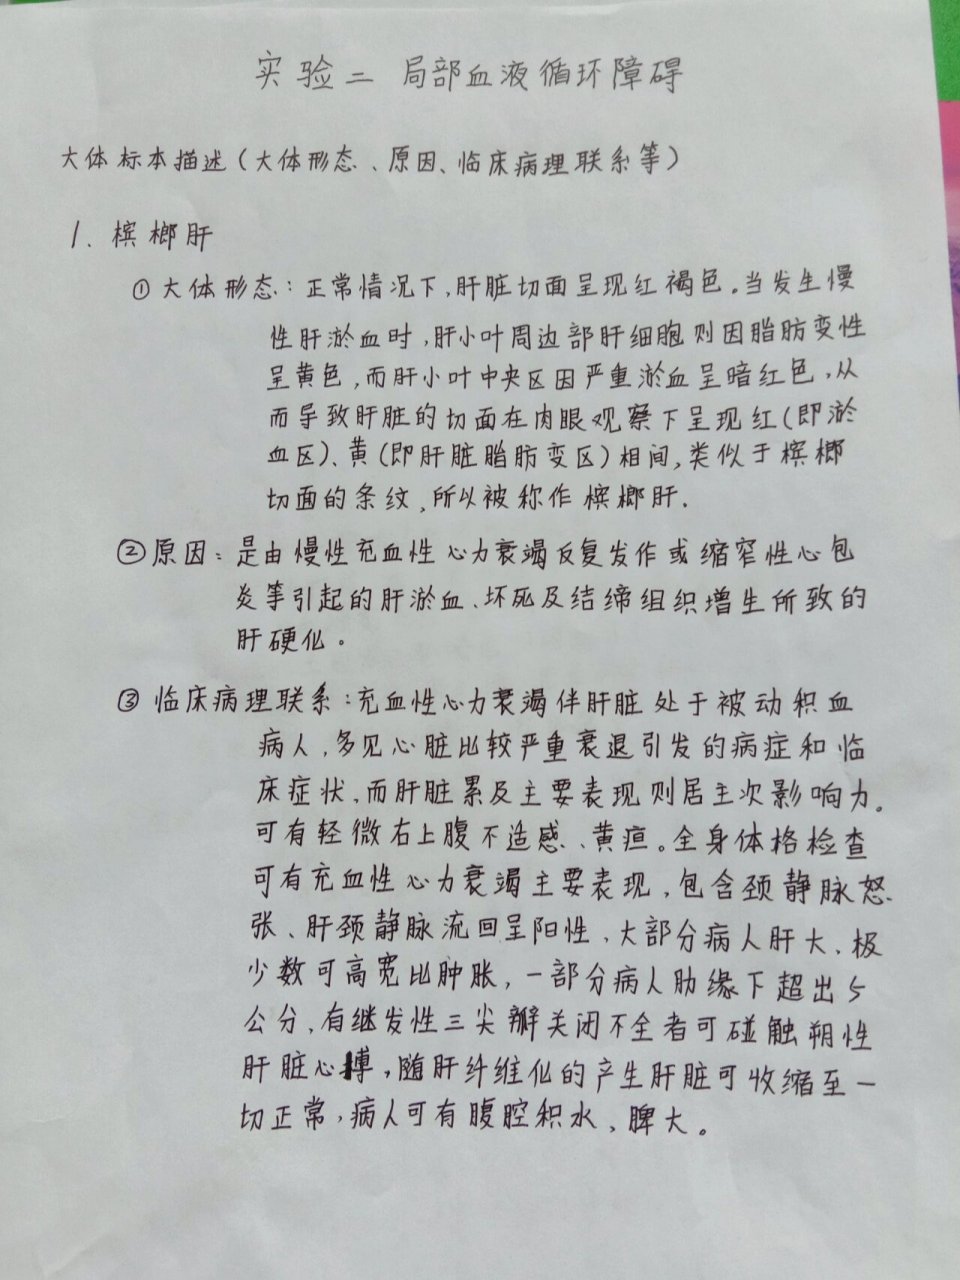 实验二 局部血液循环障碍
大体标本描述(大体形态、原因、临床病理联系等)
1、槟榔肝
①大体形态:正常情况下,肝脏切面呈现红褐色。当发生慢
性肝淤血时,肝小叶周边部肝细胞则因脂肪变性
呈黄色,而肝小叶中央区因严重淤血呈暗红色,从
而导致肝脏的切面在肉眼观察下呈现红(即淤
血区)、黄(即肝脏脂肪变区)相间,类似于槟榔
切面的条纹,所以被称作槟榔肝.
②原因:是由慢性充血性心力衰竭反复发作或缩窄性心包
炎等引起的肝淤血、坏死及结缔组织增生所致的
肝硬化。
③临床病理联系:充血性心力衰竭伴肝脏处于被动积血
病人,多见心脏比较严重衰退引发的病症和临
床症状,而肝脏累及主要表现则居主次影响力。
可有轻微右上腹不适感、黄疸。全身体格检查
可有充血性心力衰竭主要表现,包含颈静脉怒
张、肝颈静脉流回呈阳性,大部分病人肝大、极
少数可高宽比肿胀,一部分病人肋缘下超出5
公分,有继发性三尖瓣关闭不全者可碰触朔性
肝脏心搏,随肝纤维化的产生肝脏可收缩至一
切正常,病人可有腹腔积水、脾大。